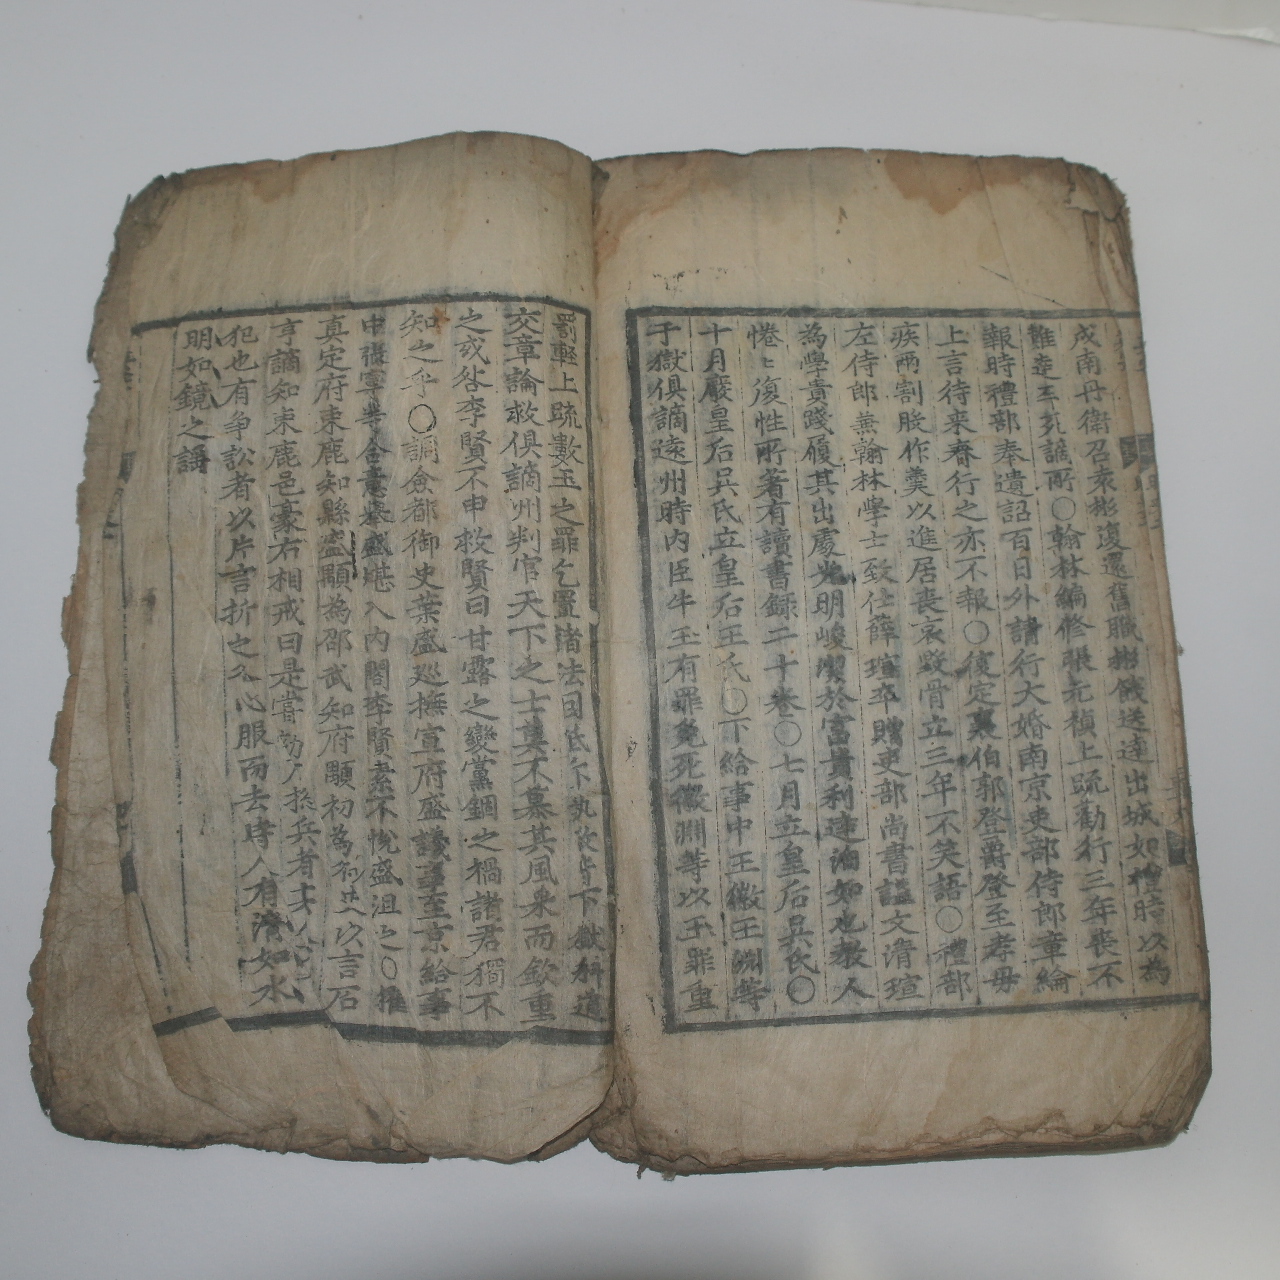 戍南丹衛召袁彬復還舊職彬餞送達出城如禮時以為
難達卒死謫所○翰林編修張元禎上疏勸行三年喪不
報時禮部奉遺詔百日外請行大婚南京吏部侍郎章綸
上言待來春行之亦不報○復定襄伯郭登爵登至孝母
疾兩割股作羹以進居喪哀毀骨立三年不笑語○禮部
左侍郎兼翰林學士致仕薛瑄卒贈吏部尚書謚文清瑄
為學貴踐履其出處光明峻潔於富貴利達泊如也教人
惓〻復性所著有讀書録二十卷○七月立皇后吳氏○
十月廢皇后吳氏立皇后王氏○下給事中王徽王淵等
于獄俱謫遠州時內臣牛玉有罪免死徽淵等以玉罪重
罰輕上疏數玉之罪乞置諸法因
交章論救俱謫州判官天下之士莫不慕其風采而欽重
之或咎李賢不申救賢曰甘露之變黨錮之禍諸君獨不
知之乎○調僉都御史葉盛巡撫宣府盛議事至京給事
中張寧等合意舉盛堪入內閣李賢素不悅盛沮之○擢
真定府束鹿知縣盛顒為邵武知府顒初為御史以言石
亨謫知束鹿邑豪右相戒曰是嘗劾
犯也有争訟者以片言折之欠心服而去時人有清如水
明如鏡之謠